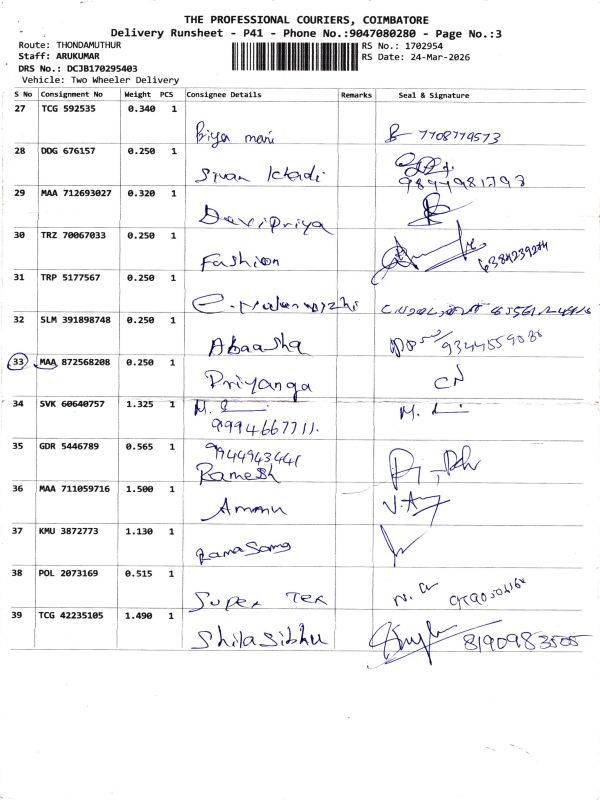 THE PROFESSIONAL COURIERS, COIMBATORE
Delivery Runsheet - P41 - Phone No.:9047080280 - Page No.:3
Route: THONDAMUTHUR
RS No.: 1702954
Staff: ARUKUMAR
RS Date: 24-Mar-2026
DRS No.: DCJB170295403
Vehicle: Two Wheeler Delivery
S No Consignment No Weight PCS Consignee Details Remarks Seal & Signature
27 TCG 592535 0.340 1
Priya mani 7708779573
28 DDG 676157 0.250 1
Sivan
9844981793
29 MAA 712693027 0.320 1
DaviPriya
30 TRZ 70067033 0.250 1
Fashion 6384239274
31 TRP 5177567 0.250 1
32 SLM 391898748 0.250 1
Abaasha
33 MAA 872568208 0.250 1
Priyanga CN
34 SVK 60640757 1.325 1
M.
9994667711.
35 GDR 5446789 0.565 1
9944943441
Ramesh
36 MAA 711059716 1.500 1
Ammu
37 KMU 3872773 1.130 1
38 POL 2073169 0.515 1
Super Tex
39 TCG 42235105 1.490 1
Shilasibhu 8190983505